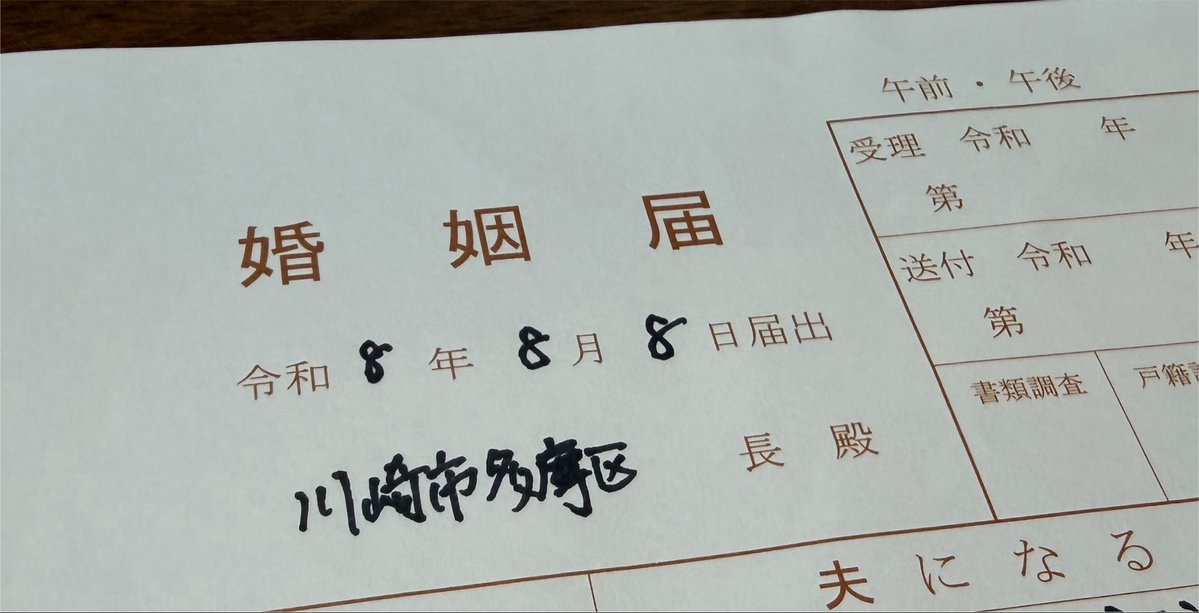 午前・午後
受理 令和 年
第
送付 令和 年
第
書類調査 戸籍
婚姻届
令和 8 年 8 月 8 日届出
川崎市多摩区 長殿
夫になる